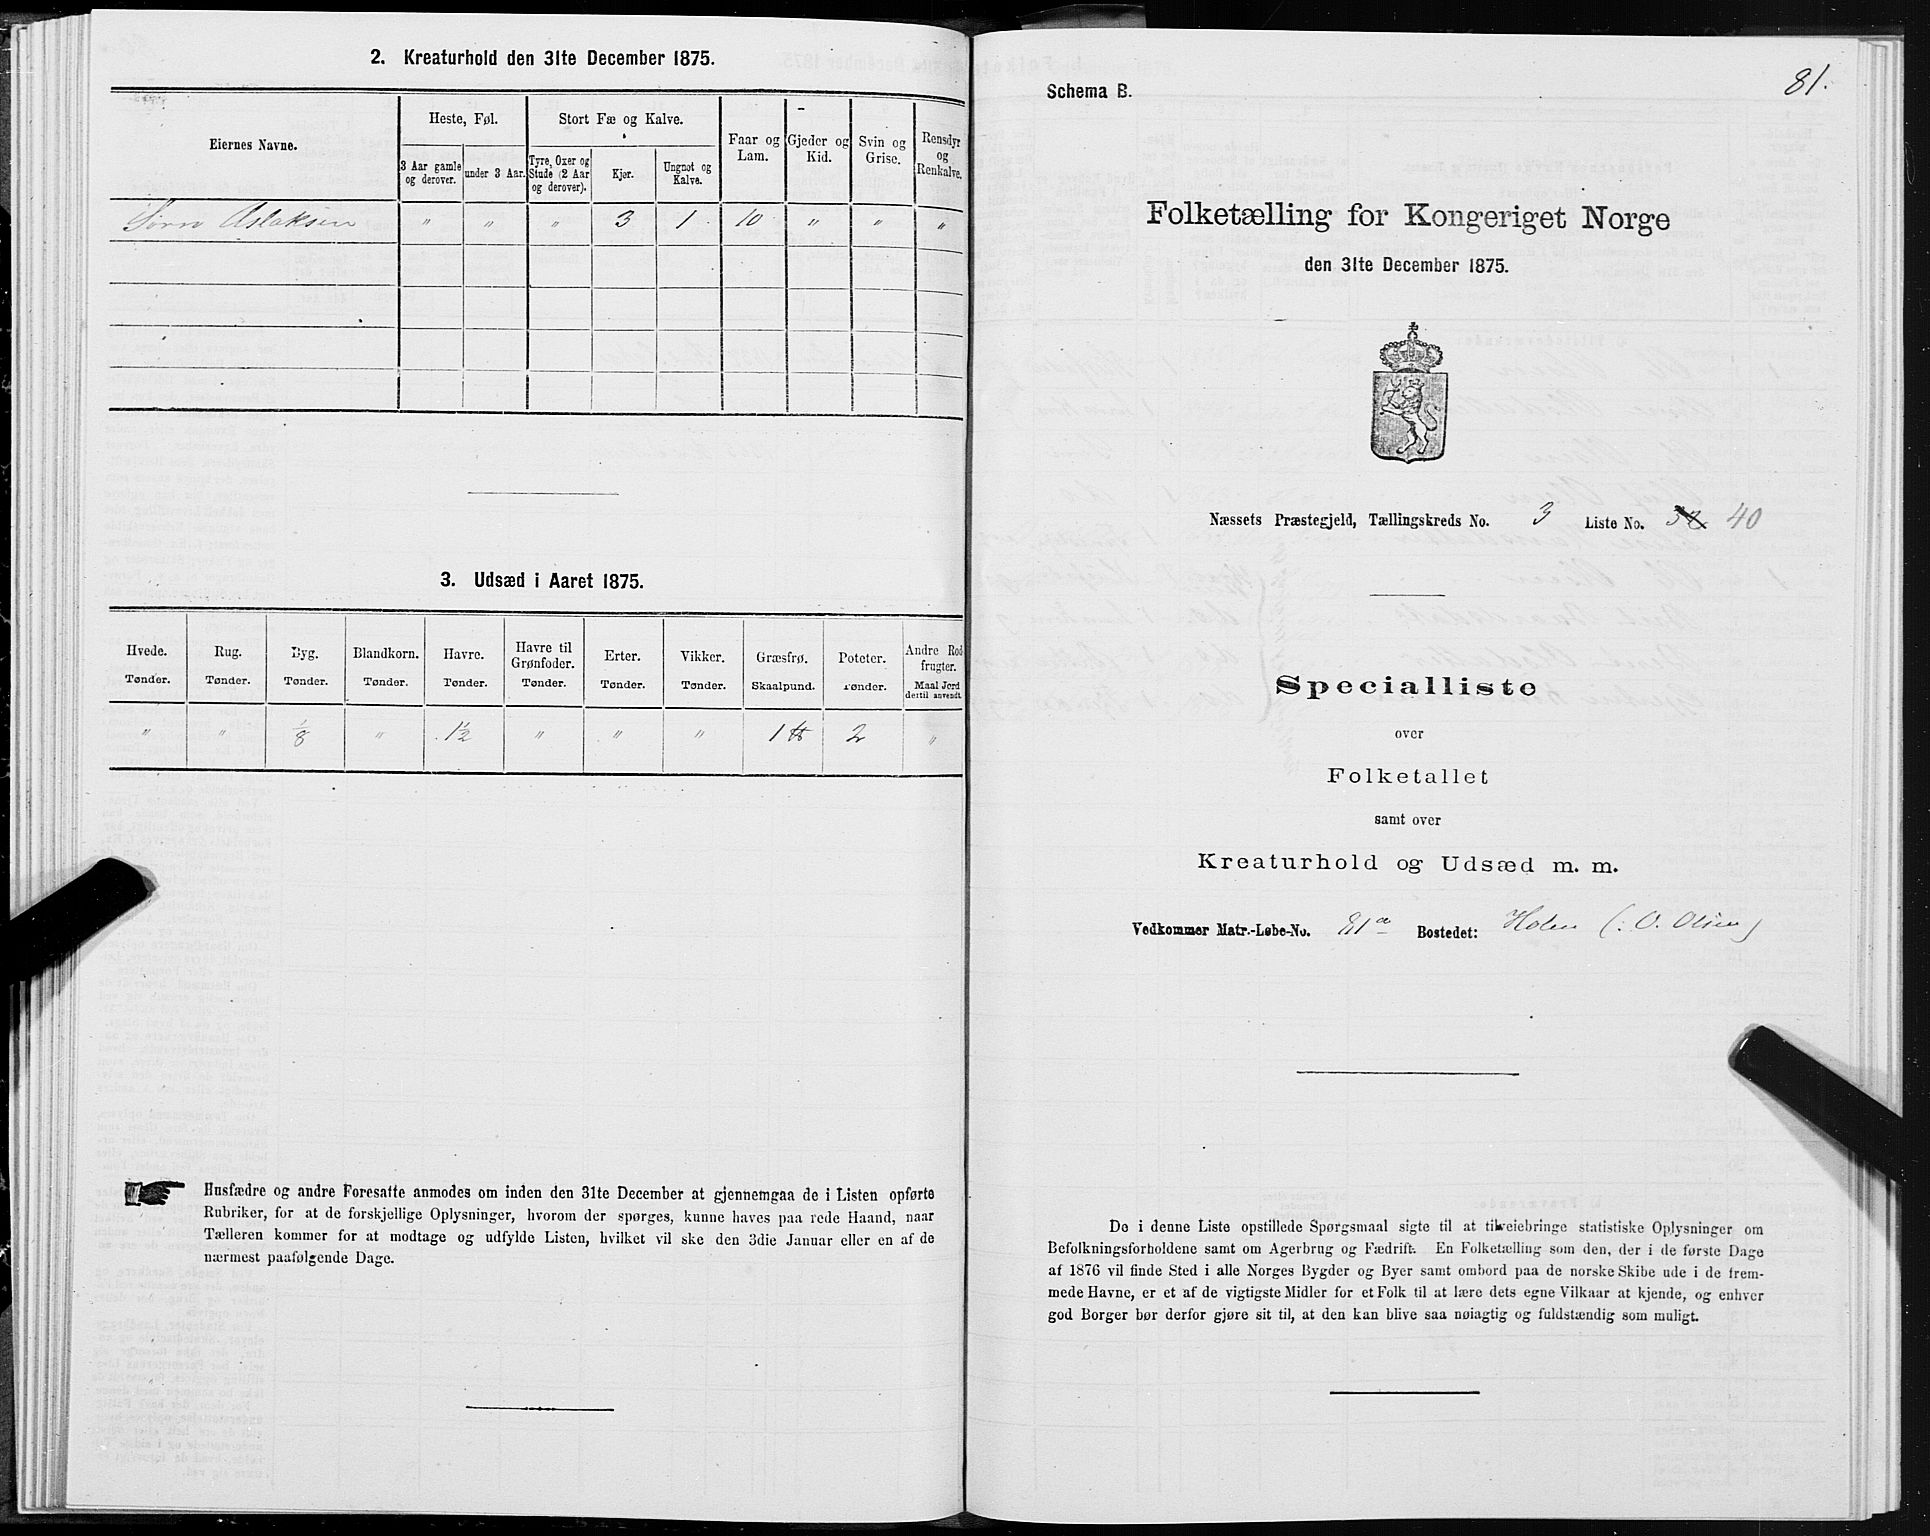 2. Kreaturhold den 31te December 1875.
Eiernes Navne.
Heste, Føl.
Stort Fæ og Kalve.
Faar og Lam.
Gjeder og Kid.
Svin og Grise.
Rensdyr og Renkalve.
3 Aar gamle og derover.
under 3 Aar.
Tyre, Oxer og Stude (2 Aar og derover).
Kjør.
Ungnøt og Kalve.
Aslaksen " " " 3 1 10 " " "
3. Udsæd i Aaret 1875.
Hvede. Rug. Byg. Blandkorn. Havre. Havre til Grønfoder. Erter. Vikker. Græsfrø. Poteter. Andre Rodfrugter.
Tønder. Tønder. Tønder. Tønder. Tønder. Tønder. Tønder. Tønder. Skaalpund. Tønder. Maal Jord dertil anvendt.
" " 1/8 " 1 1/2 " " " 1 ℔ 2 "
Husfædre og andre Foresatte anmodes om inden den 31te December at gjennemgaa de i Listen opførte
Rubriker, for at de forskjellige Oplysninger, hvorom der spørges, kunne haves paa rede Haand, naar
Tælleren kommer for at modtage og udfylde Listen, hvilket vil ske den 3die Januar eller en af de
nærmest paafølgende Dage.
81.
Schema B.
Folketælling for Kongeriget Norge
den 31te December 1875.
Næssets Præstegjeld, Tællingskreds No. 3 Liste No. 40
Specialliste
over
Folketallet
samt over
Kreaturhold og Udsæd m. m.
Vedkommer Matr.-Løbe-No. 81a Bostedet: Holen (: O. Olsen)
De i denne Liste opstillede Spørgsmaal sigte til at tilveiebringe statistiske Oplysninger om
Befolkningsforholdene samt om Agerbrug og Fædrift. En Folketælling som den, der i de første Dage
af 1876 vil finde Sted i alle Norges Bygder og Byer samt ombord paa de norske Skibe ude i de frem-
mede Havne, er et af de vigtigste Midler for et Folk til at lære dets egne Vilkaar at kjende, og enhver
god Borger bør derfor gjøre sit til, at den kan blive saa nøiagtig og fuldstændig som muligt.